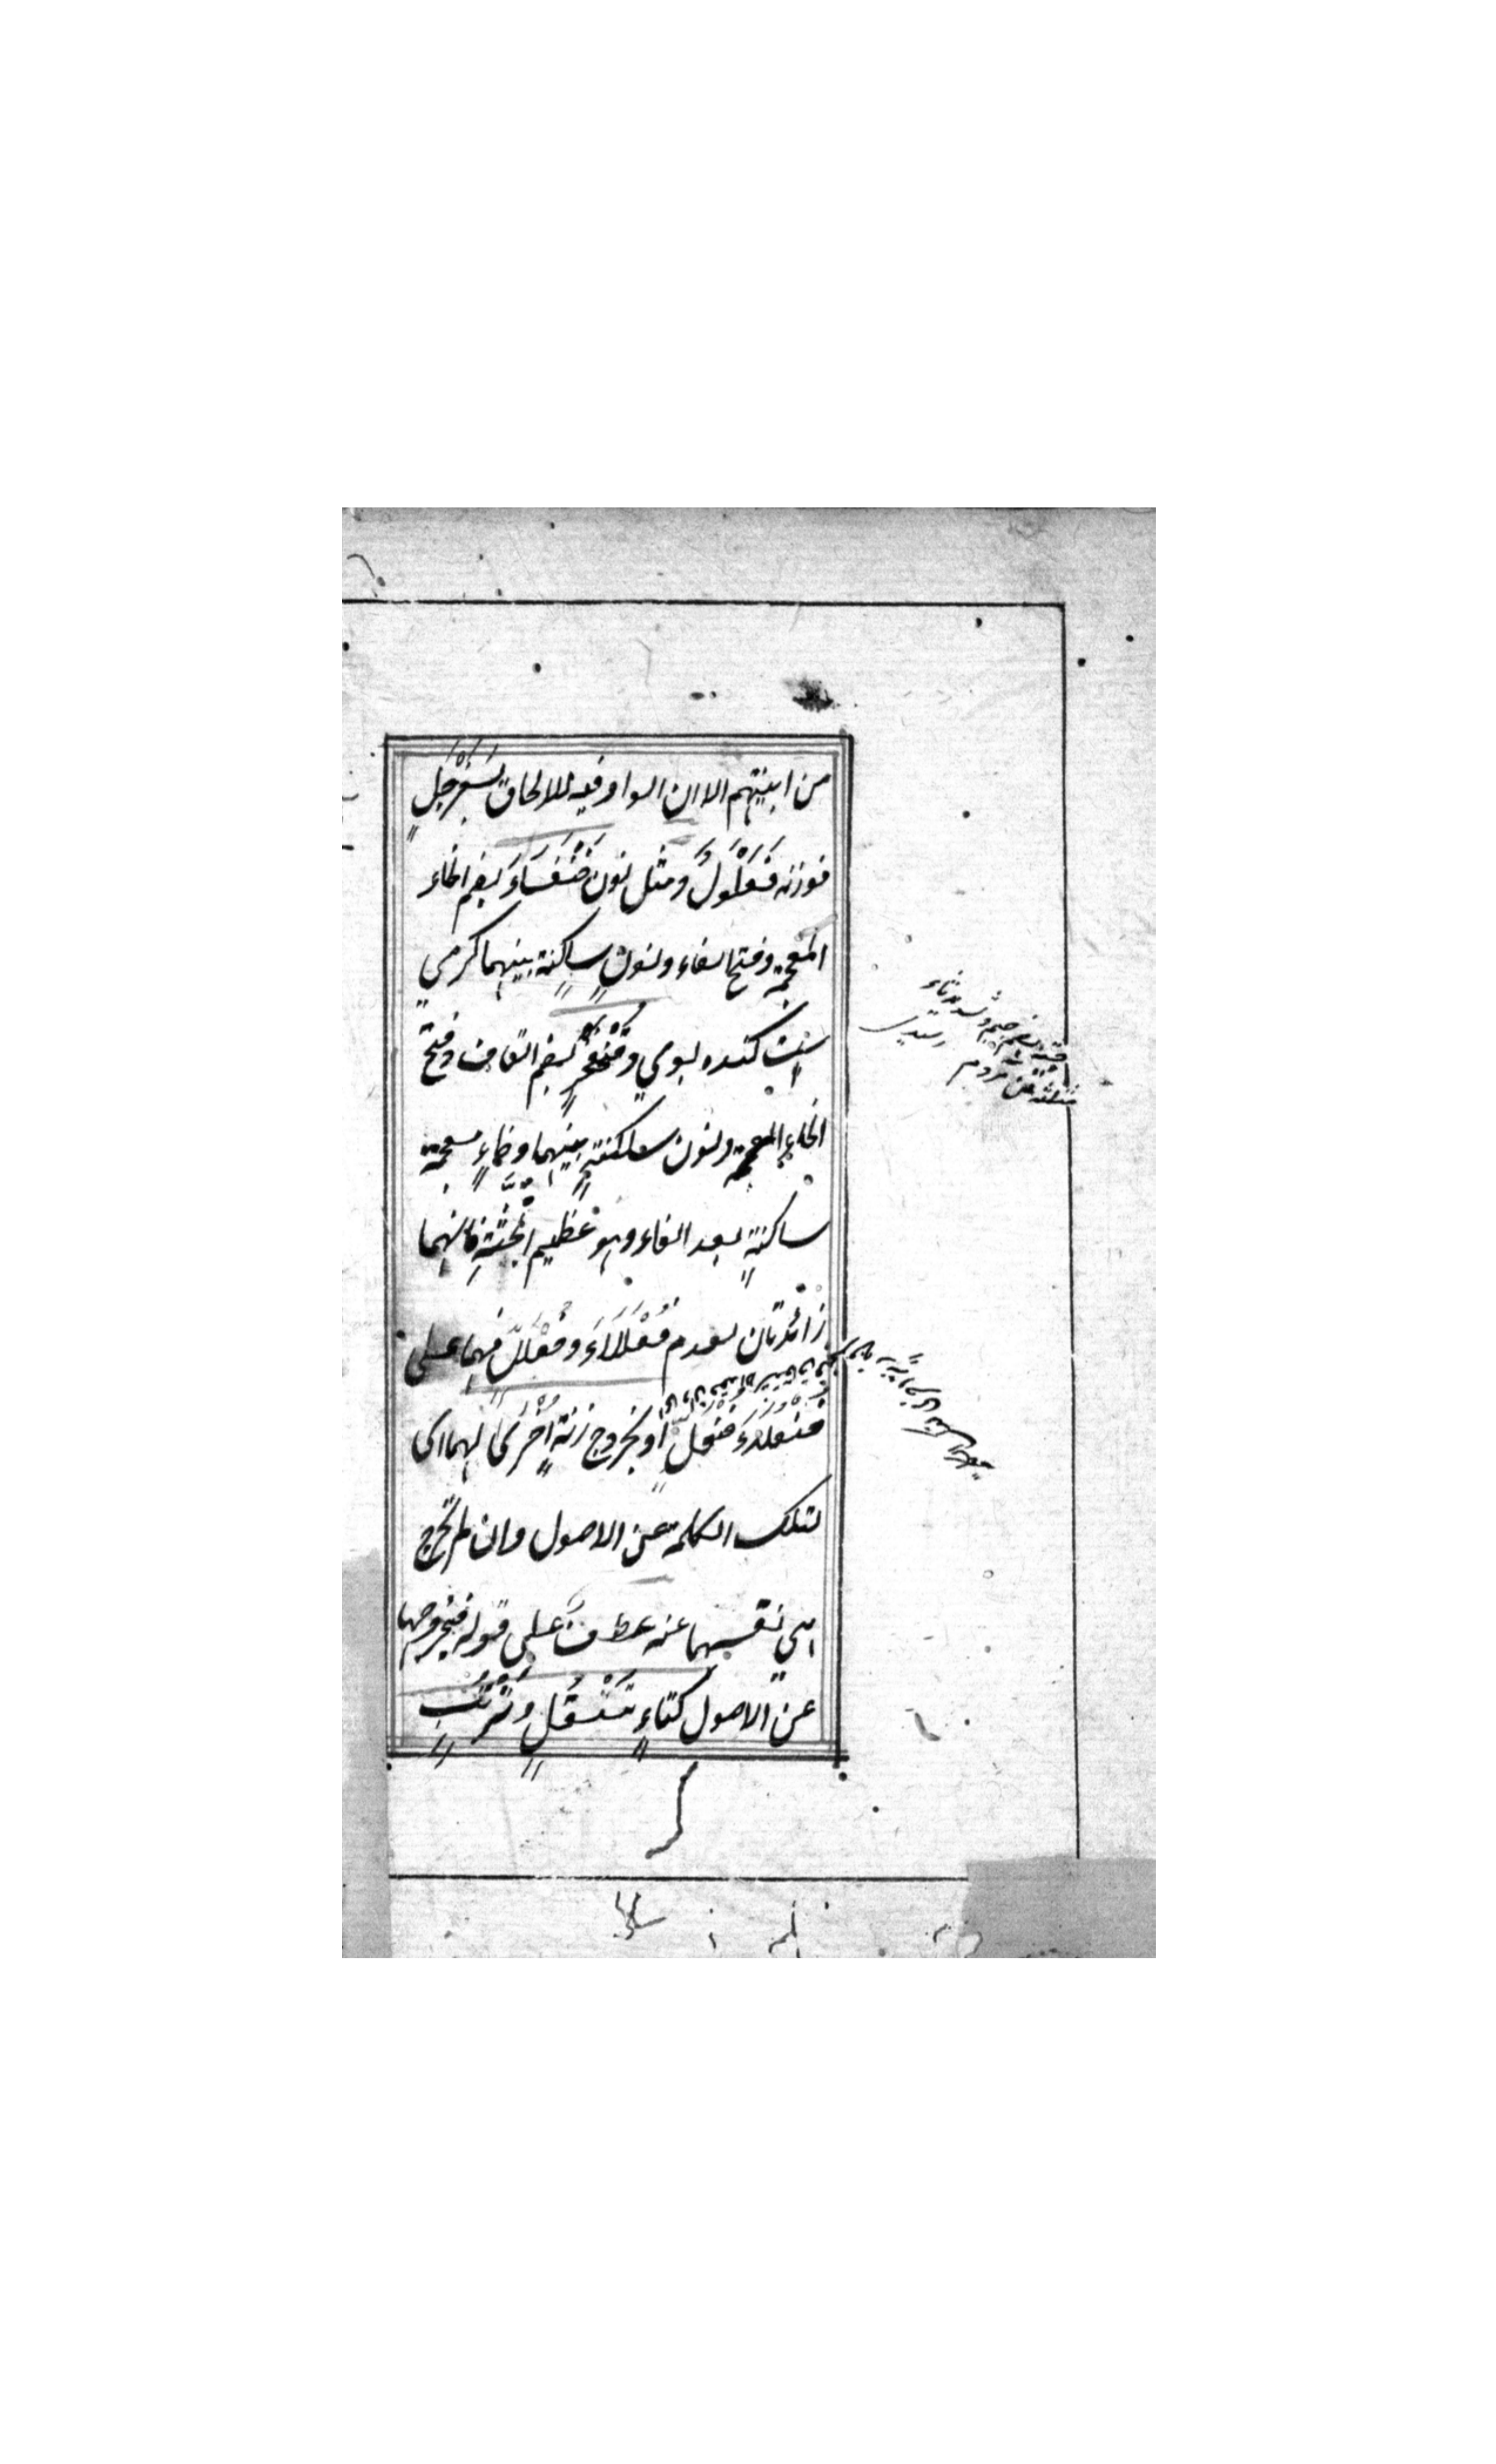 من ابنيتهم الا ان الواو فيه للالحاق بسَفَرْجَلٍ
فوزنه فَعَلْوَلٌ ومثل نون خُنْفَسَاءَ بضم الخاء
المعجمة وفتح الفاء ونونٍ ساكنة بينهما كرمي
ست كنده بوي وقُنْفَخْرٍ بضم القاف وفتح
الخاء المعجمة ونون ساكنةٍ بينهما وخاءٍ معجمة
ساكنةٍ بعد الفاء وهو عظيم الجُثَّةِ فانهما
زائدتان لعدم فُعْلَلَاءَ وفُعْلَلٍّ فهما على
فنعلاءَ فنعلٍ او بخروج زنةٍ اُخْرَىٰ لهما اى
لتلك الكلمة عن الاصول وان لم تخرج
هي نفسها عنه عطف على قوله فبخروجها
عن الاصول كتاءِ تَتْفُلٍ وتُرْتَبٍ
جثه بضم جيم وتشديد ثاء
مثلثه تن مردم